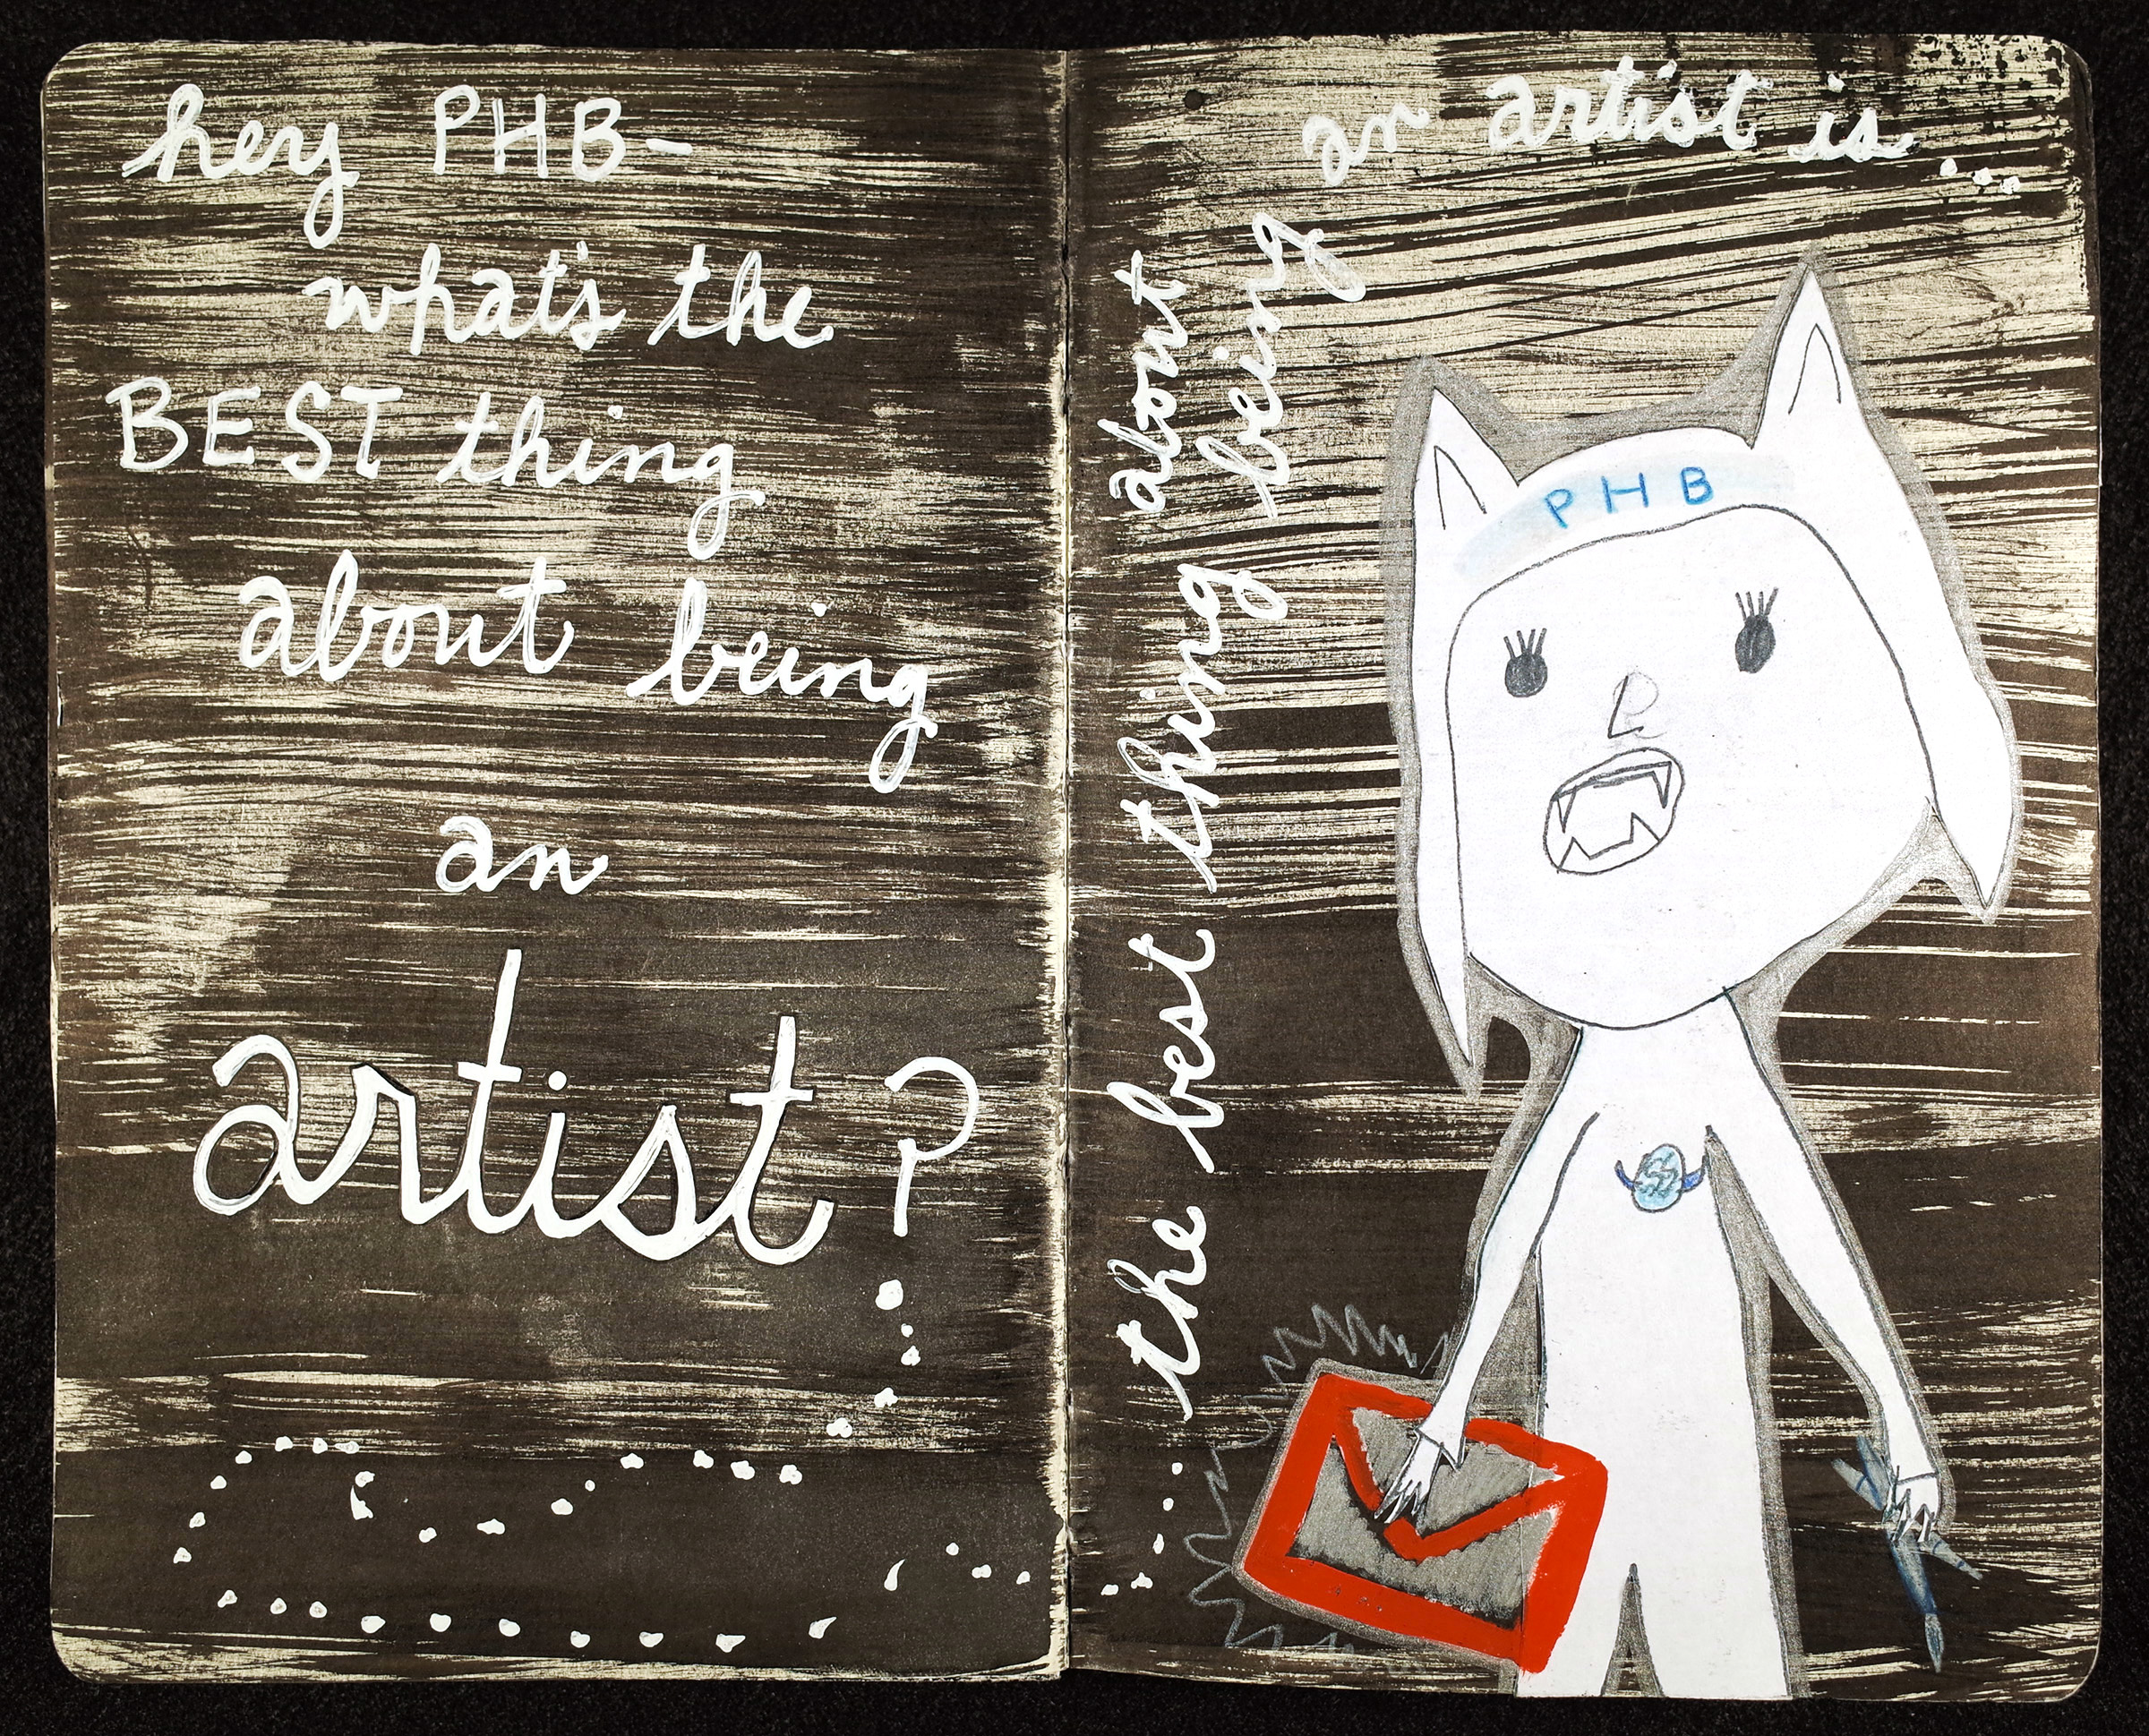 hey PHB-
what's the
BEST thing
about being
an
artist?
the best thing
about
being
an artist is....
PHB